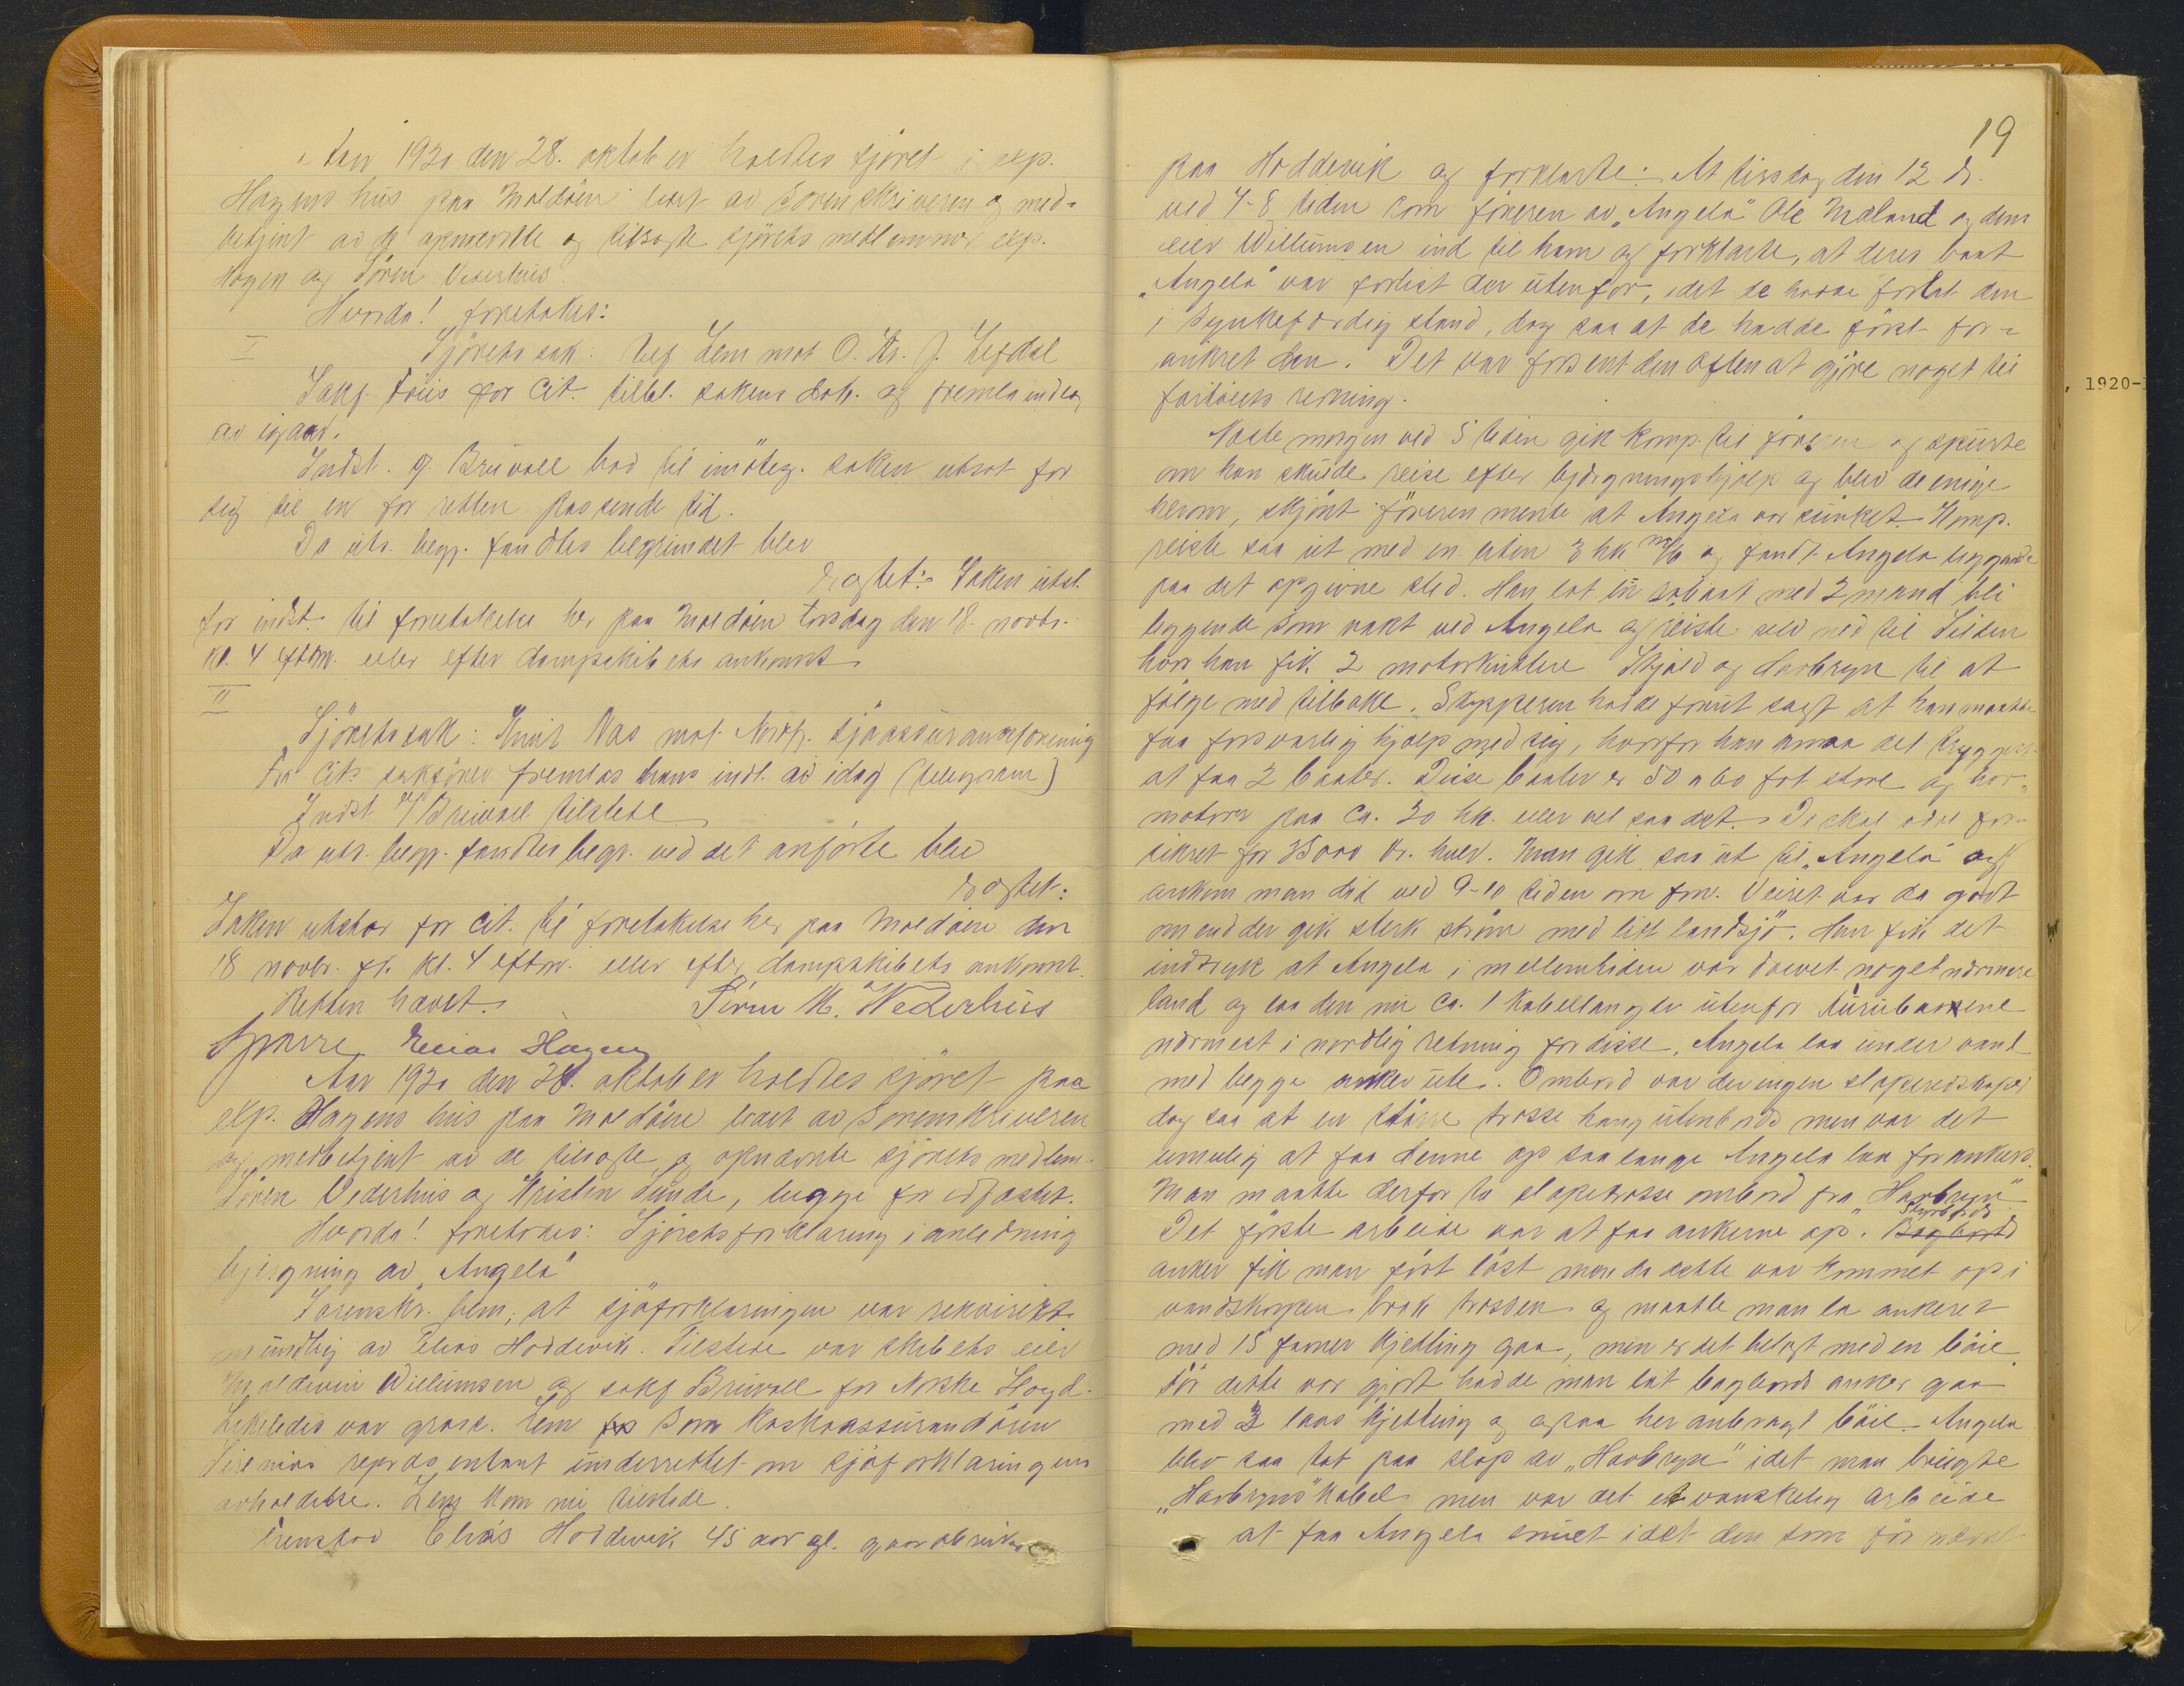 Aar 1920 den 28. oktober holdtes sjöret i exp.
Hagens hus paa Moldöen ledet av Sorenskriveren og med-
betjent av de opnævnte og tilsagte sjörets medlemmer exp.
Hagen og Sören Vederhus.
Hvorda! foretokes:
I Sjöretssak: Leif Lem mot O. Kr. J. Lefdal
Sakf. Friis for Cit. tilbl. sakens dok. og fremla indlæg
av igaar.
Indst. v. Bruvoll bad til imöteg. saken utsat for
sig til en for retten passende tid.
Da uts. begj. fandtes begrundet blev
Eragtet: Saken utst.
for indst. til foretakelse her paa Moldöen torsdag den 18. novbr.
kl. 4 eftm. eller efter dampskibets ankomst
II
Sjöretssak: Knut Nas mot Nordfj. sjöassuranceforening
For Cits sakförer fremlas hans indl. av idag (telegram)
Indst. v/ Bruvoll tilstede
Da uts. begj. fandtes begr. ved det anförte blev
Eragtet:
Saken utstaar for Cit. til foretakelse her paa Moldöen den
18 novbr. fk. kl. 4 eftm. eller efter dampskibets ankomst.
Retten hævet. Sören M. Wederhus
Sparre Elias Hagen
Aar 1920 den 28. oktober holdtes sjöret paa
exp. Hagens hus paa Moldöen ledet av Sorenskriveren
og medbetjent av de tilsagte og opnævnte sjörets medlem.
Sören Vederhus og Kristen Sunde, begge før edfæstet.
Hvorda! foretokes: Sjöretsforklaring i anledning
bjergning av "Angela"
Sorenskr. bem. at sjöforklaringen var rekvirert
mundtlig av Elias Hoddevik. Tilstede var skibets eier
Maldevin Willumsen og sakf Bruvoll for Norske Lloyd.
Likeledes var grosc. Lem som Kaskoassurandören
repræsentant underrettet om sjöforklaringens
avholdelse. Lem kom nu tilstede.
Fremstod Elias Hoddevik 45 aar gl. gaardbruker
19
paa Hoddevik og forklarte: At tirsdag den 12 ds.
ved 7-8 tiden kom föreren av "Angela" Ole Mæland og dens
eier Willumsen ind til ham og forklarte, at deres baat
"Angela" var forlist der utenfor, idet de hadde forlat den
i synkefærdig stand, dog saa at de hadde först for-
ankret den. Det var forsent den aften at gjöre noget til
fartöiets redning.
Næste morgen ved 5 tiden gik komp. til föreren og spurte
om han skulde reise efter bjergningshjælp og blev de enige
herom, skjönt föreren mente at Angela var sunket. Komp.
reiste saa ut med en liten 3 hk m/b og fandt Angela liggende
paa det opgivne sted. Han lot en robaat med 2 mand bli
liggende som vakt ved Angela og reiste selv ned til Silden
hvor han fik 2 motorkuttere Skjold og Havbryn til at
fölge med tilbake. Skipperen hadde forut sagt at han maatte
faa forsvarlig hjælp med sig, hvorfor han ansaa det tryggest
at faa 2 baater. Disse baater er 50 a 60 fot store og har
motorer paa ca. 30 hk. eller vel saa det. De skal være for-
sikret for 35000 kr. hver. Man gik saa ut til "Angela" og
ankom man dit ved 9-10 tiden om fm. Veiret var da godt
om end der gik sterk ström med litt landsjö. Han fik det
indtryk at Angela i mellemtiden var drevet noget nærmere
land og laa den nu ca. 1 kabellængde utenfor
nærmest i nordlig retning for disse. Angela laa under vand
med begge anker ute. Ombord var der ingen slæperedskaper
dog saa at en större trosse hang utenbords men var det
umulig at faa denne op saalænge Angela laa forankret.
Man maatte derfor ta slæpetrosse ombord fra "Havbryn"
Det förste arbeide var at faa ankerne op. Bagbord Styrbords
anker fik man först löst men da dette var kommet op i
vandskorpen brak trossen og maatte man la ankeret
med 15 favner kjetting gaa, men er det belagt med en böie
För dette var gjort hadde man lat bagbords anker gaa
med 3 laas kjetting og ogsaa her anbragt böie. Angela
blev saa tat paa slæp av "Havbryn" idet man brugte
"Havbryns" kabel men var det et vanskelig arbeide
at faa Angela snuet idet den som för nævnt